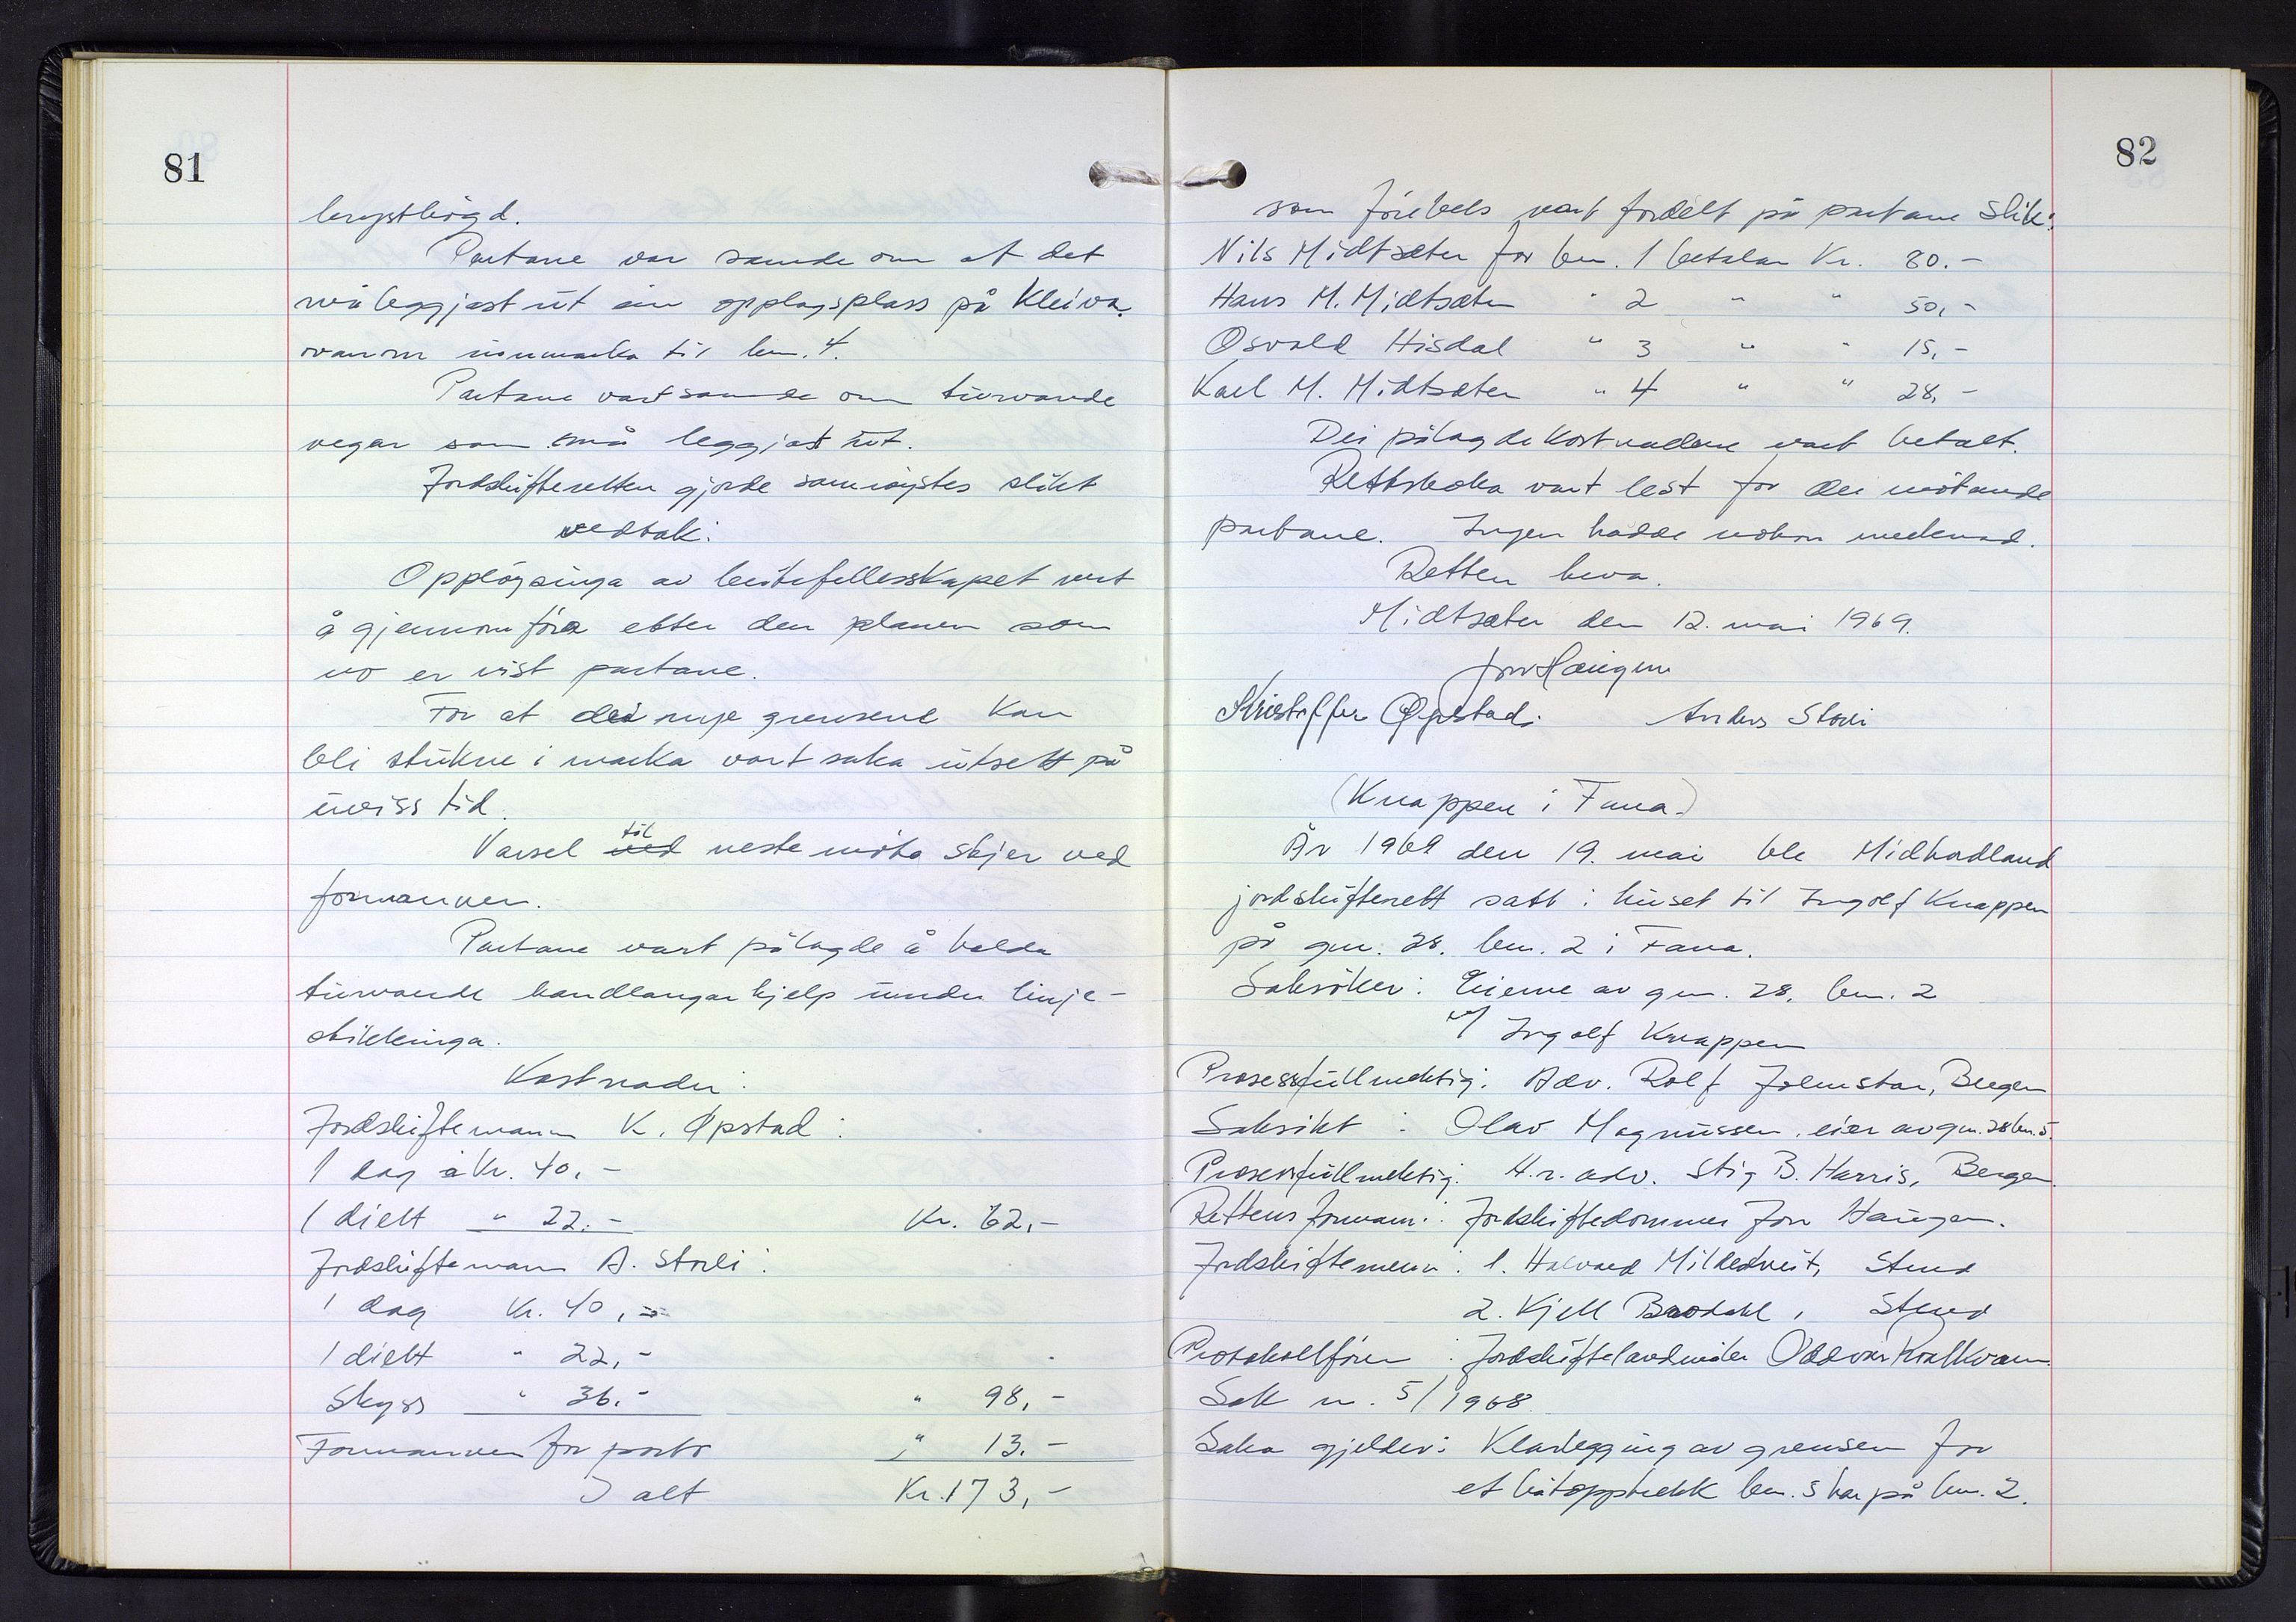 81
brysthögd.
Partane var samde om at det
må leggjast ut ein opplagsplass på Kleiva
ovanom innmarka til bnr. 4.
Partane vart samde om turvande
vegar som må leggjast ut.
Jordskifteretten gjorde samröystes slikt
vedtak:
Opplöysinga av beitefellesskapet vert
å gjennomföra etter den planen som
no er vist partane.
For at dei nye grensene kan
bli stukne i marka vart saka utsett på
uviss tid.
Varsel til neste möte skjer ved
formannen.
Partane vart pålagde å halda
turvande handlangarhjelp under linje-
stikkinga.
Kostnader:
Jordskiftemann K. Öpstad:
1 dag à Kr. 40,-
1 diett " 22.- Kr. 62,-
Jordskiftemann A. Storli:
1 dag Kr. 40,-
1 diett " 22,-
Skyss " 36.- " 98,-
Formannen for porto " 13.-
I alt Kr. 173,-
82
som förebels vart fordelt på partane slik:
Nils Midtsæter for bnr. 1 betalar Kr. 80.-
Hans M. Midtsæter " 2 " " 50,-
Osvald Hisdal " 3 " " 15,-
Karl M. Midtsæter " 4 " " 28,-
Dei pålagde kostnadene vart betalt.
Rettsboka vart lest for dei mötande
partane. Ingen hadde nokon merknad.
Retten heva.
Midtsæter den 12. mai 1969.
Jon Haugen
Kristoffer Öpstad. Anders Storli
(Knappen i Fana)
År 1969 den 19. mai ble Midhordland
jordskifterett satt i huset til Ingolf Knappen
på gnr. 28. bnr. 2 i Fana.
Saksöker: Eierne av gnr. 28, bnr. 2
v/ Ingolf Knappen
Prosessfullmektig: Adv. Rolf Jolmstar, Bergen
Saksökt : Olav Magnussen, eier av gnr. 28 bnr. 5.
Prosessfullmektig: H.r. adv. Stig B. Harris, Bergen.
Rettens formann: Jordskiftedommer Jon Haugen.
Jordskiftemenn: 1. Halvard Mildedveit, Stend
2. Kjell Brodahl, Stend
Protokollförer : Jordskiftelandmåler Oddvar Kvalkvam.
Sak nr. 5/1968.
Saka gjelder: Klarlegging av grensen for
et båtopptrekk bnr. 5 har på bnr. 2.